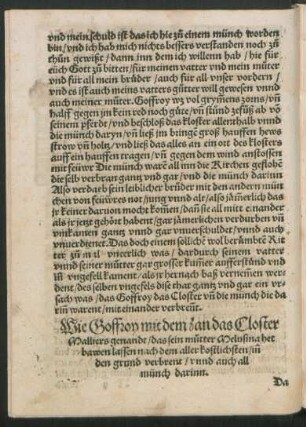 vnd mein schuld ist das ich hie zů einem münch worden
bin / vnd ich hab mich nichts bessers verstanden noch zů
thůn gewißt / dann inn dem ich willenn hab / hie für
eüch Gott zů bitten / für meinen vatter vnd mein můter
vnd für all mein brůder / auch für all vnser vordern /
vnd es ist auch meins vatters gůtter will gewesen vnnd
auch meiner můter. Goffroy wz vol grymens zorns / vñ
halff gegen jm kein red noch gůte / vñ stůnd
seinem pferdt / vnd beschloß das kloster allenthalb vnnd
die münch daryn / vñ ließ jm bringē groß hauffen hews
strow vñ holtz / vnd ließ das alles an ein ort des klosters
auff ein hauffen tragen / vñ gegen dem wind anstossen
mit feüwr Die münch warē all inn die Kirchen geflohē
die selb verbran gantz vnd gar / vnd die münch darinn
Also verdarb sein leiblicher brůder mit den andern mün
chen von feüwres not / jung vnnd alt / also jämerlich das
jr keiner darvon mocht komen / dañ sie all mit einander
als jr jetzt gehört habent / gar jämerlichen verdurben vñ
verbrunnen gantz vnnd gar vnuerschuldet / vnnd auch
vnuerdienet. Das doch einem söllichē wol berůmbtē Rit
ter zů vneerlich was / dardurch seinem vatter
vnnd seiner můter gar grosser kumer aufferstůnd vnd
vngefell kament / als jr hernach baß vernemen wer
dent / des selben vngefels dise that gantz vnd gar ein vr-
sach was / das Goffroy das Closter vñ die münch die da
rin warent / mit einander verbrent.
Wie Goffroy mit dem Zan das Closter
Malliers genandt / das sein můter Melusina het
bawen lassen nach dem aller kostlichsten / in
den grund verbrent / vnnd auch all
münch darinn.
Da